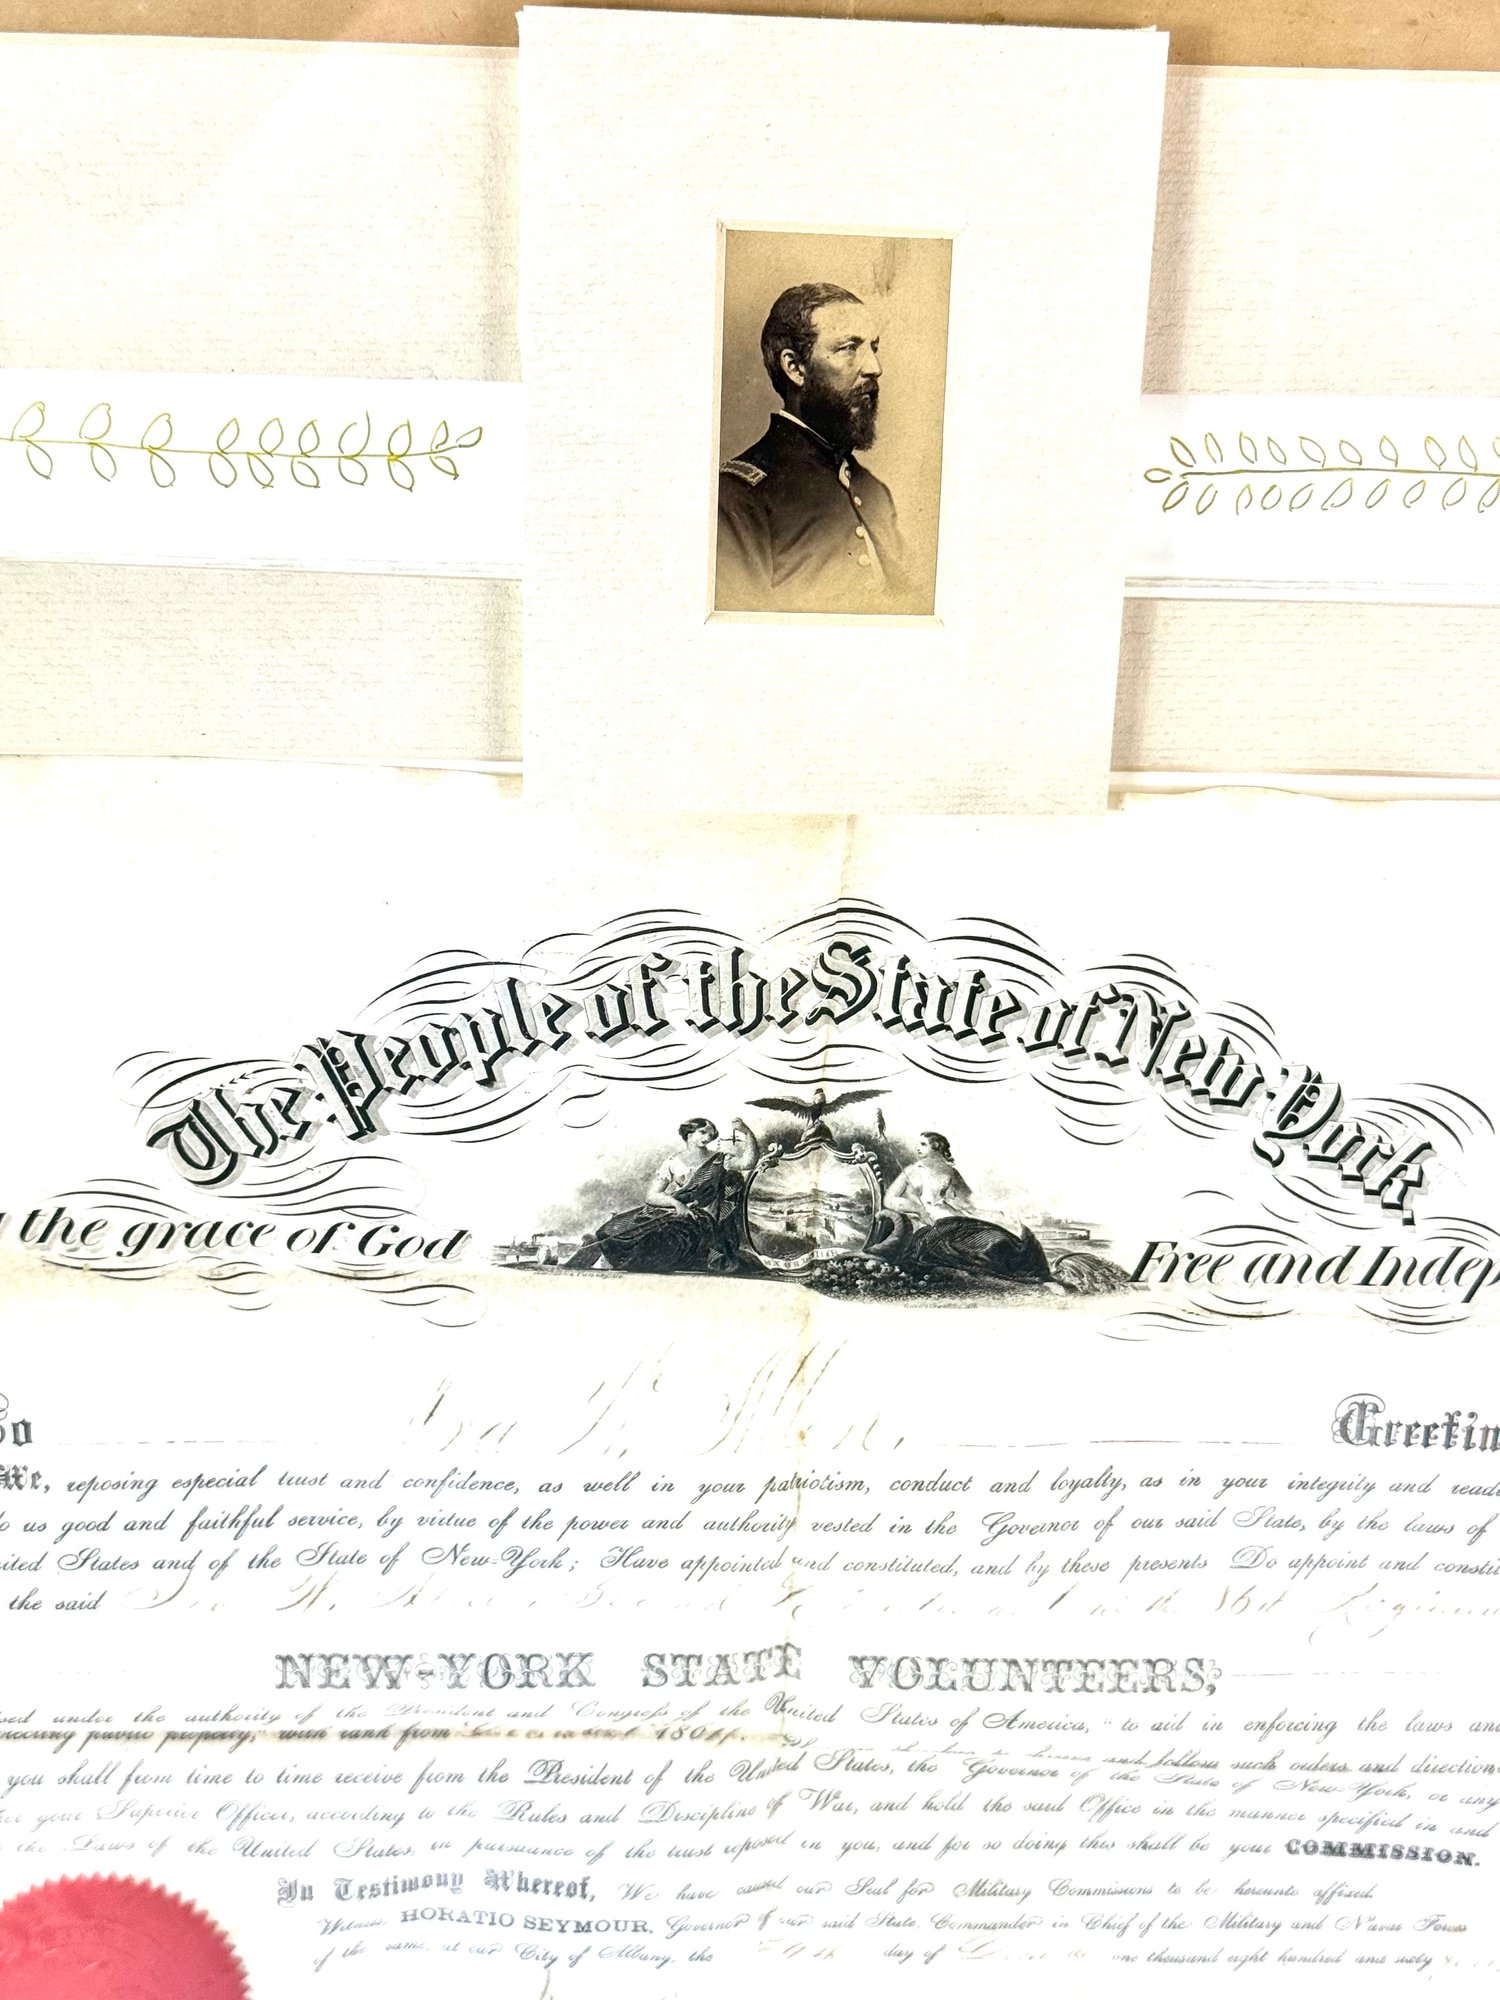 The People of the State of New-York
the grace of God
Free and Indep
Ira H. Allen, Greetin
We, reposing especial trust and confidence, as well in your patriotism, conduct and loyalty, as in your integrity and read
us good and faithful service, by virtue of the power and authority vested in the Governor of our said State, by the laws of
ited States and of the State of New-York; Have appointed and constituted, and by these presents Do appoint and constit
the said H. in the 86th Regim
NEW-YORK STATE VOLUNTEERS,
under the authority of the President and Congress of the United States of America, "to aid in enforcing the laws and
public property," with rank from 1864.
and follow such orders and direction
you shall from time to time receive from the President of the United States, the Governor of the State of New-York, or any
your Superior Officer, according to the Rules and Discipline of War, and hold the said Office in the manner specified in and
the Laws of the United States, in pursuance of the trust reposed in you, and for so doing this shall be your COMMISSION.
In Testimony Whereof, We have caused our Seal for Military Commissions to be hereunto affixed.
Witness, HORATIO SEYMOUR, Governor of our said State, Commander in Chief of the Military and Naval Forces
of the same, at our City of Albany, the day of one thousand eight hundred and sixty